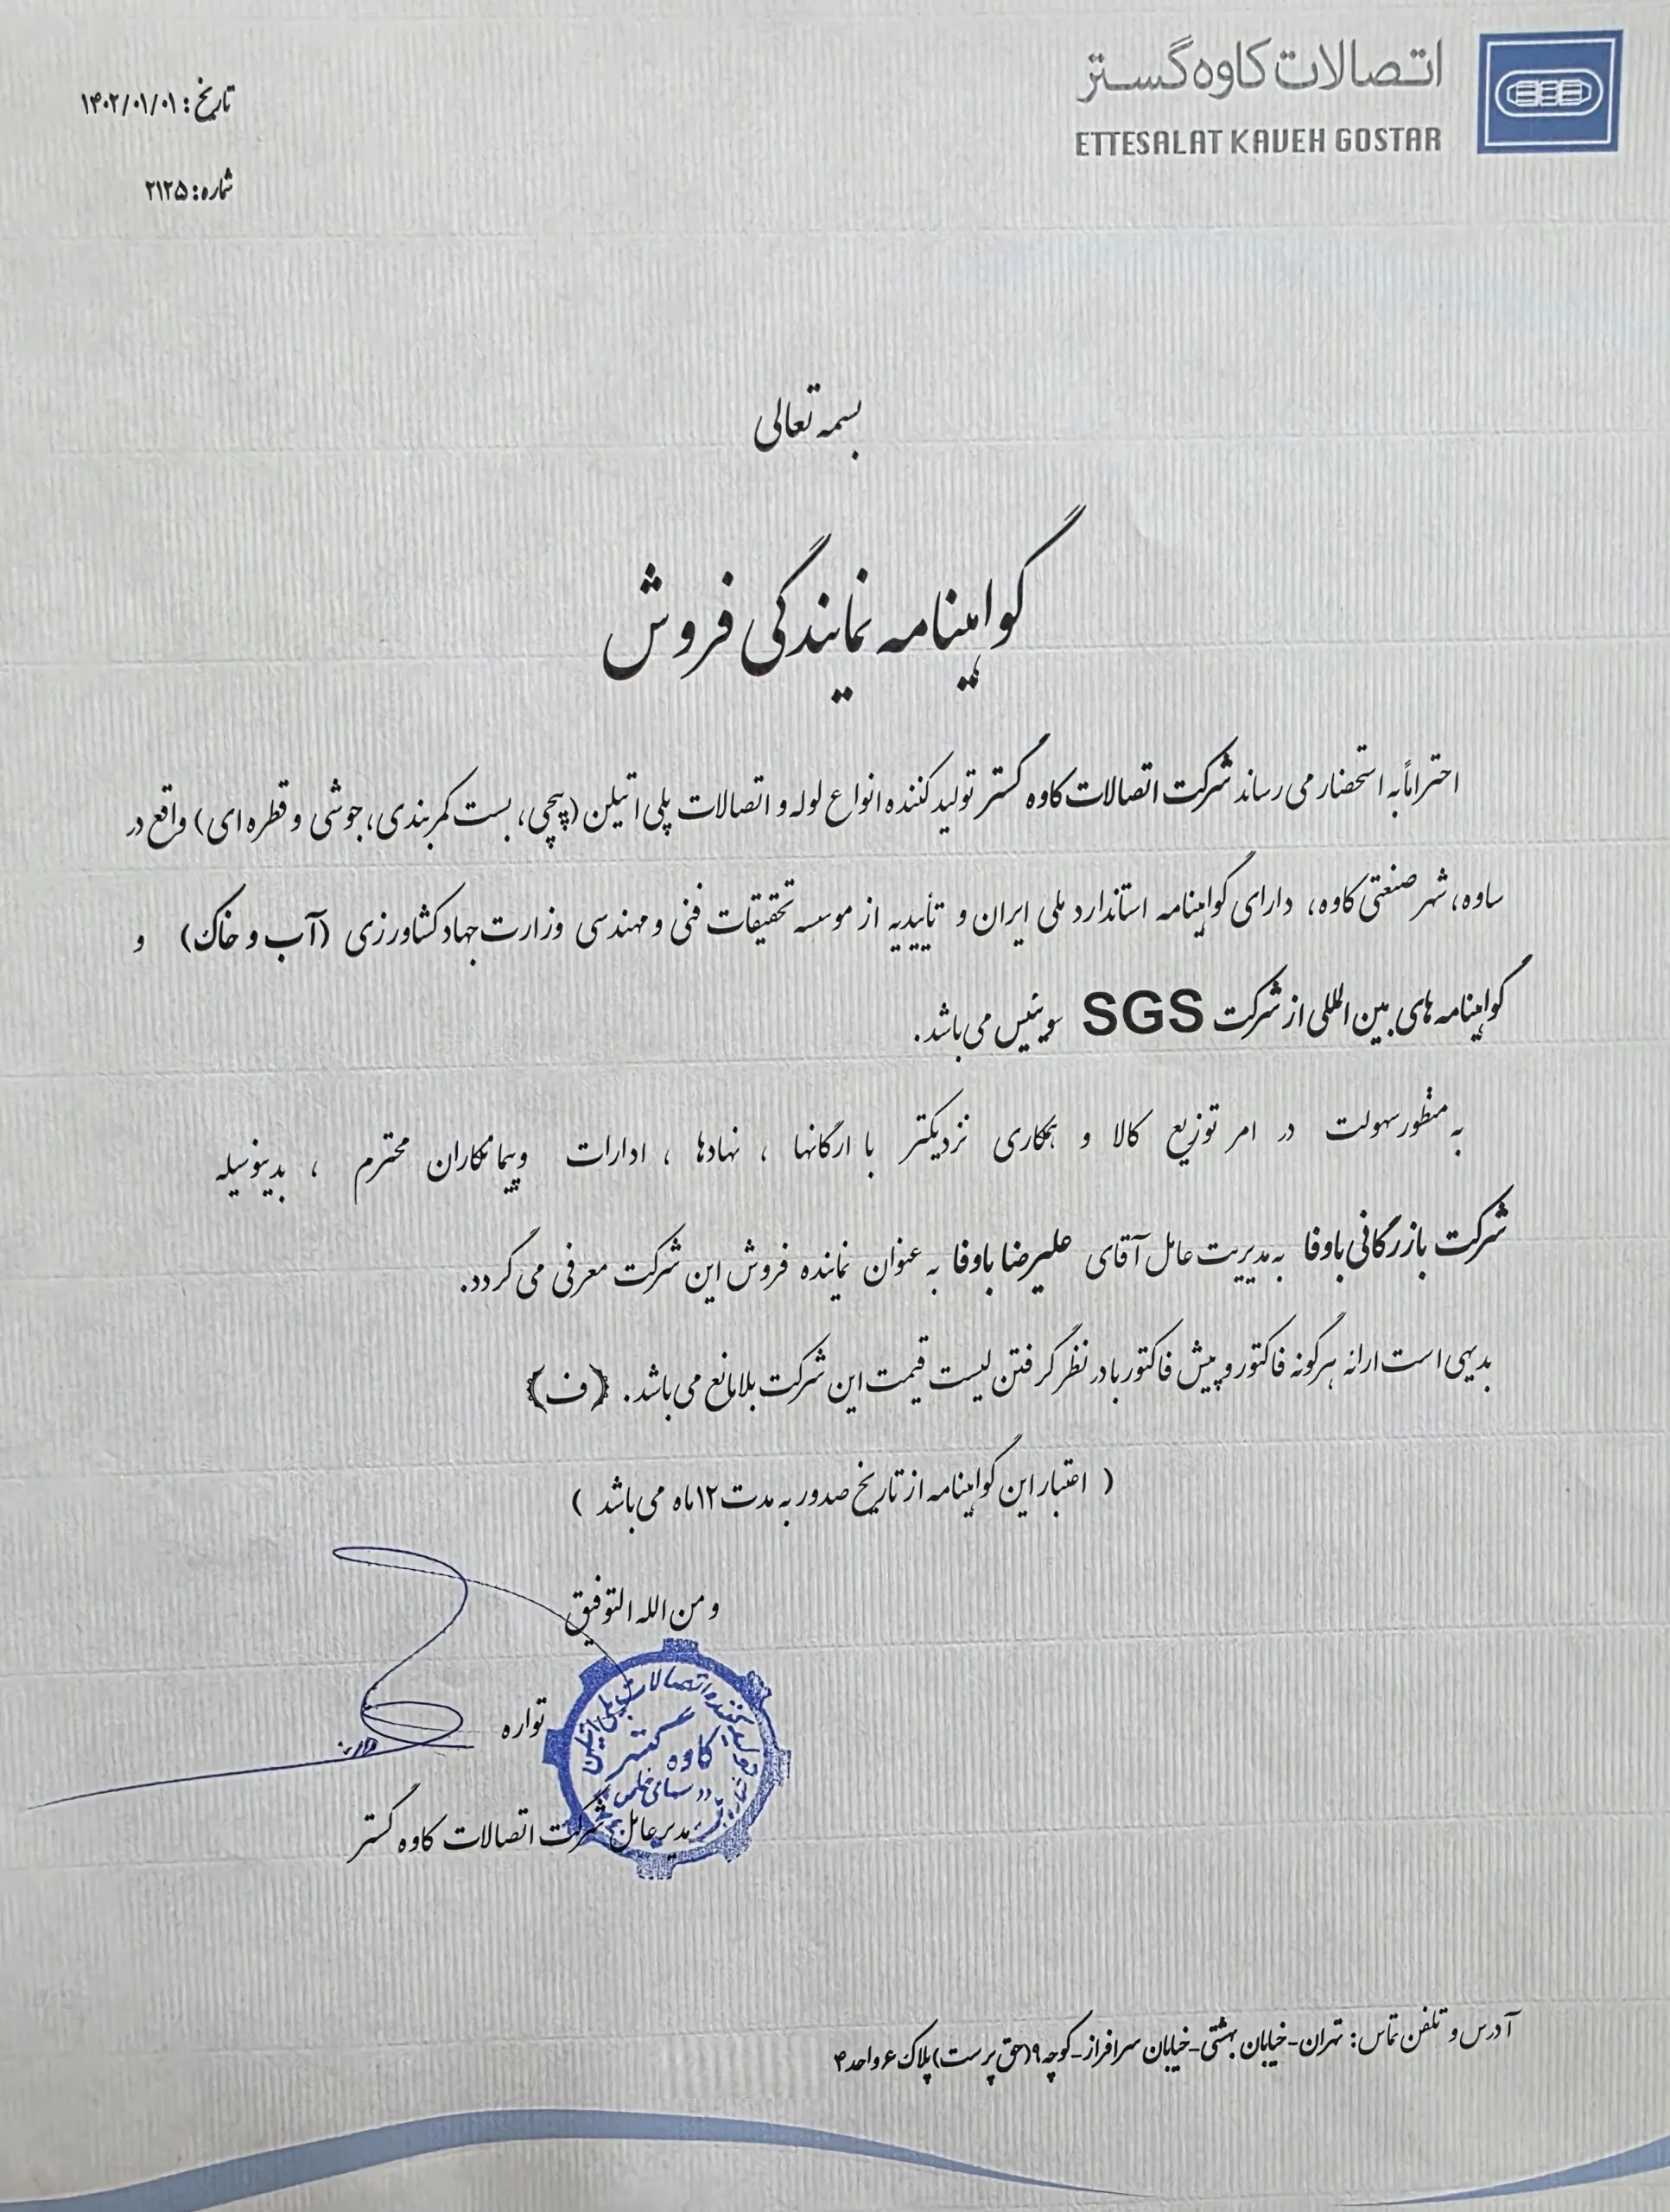 اتصالات کاوه گستر
ETTESALAT KAVEH GOSTAR
تاریخ: ۱۴۰۲/۰۱/۰۱
شماره: ۲۱۲۵
بسمه تعالی
گواهینامه نمایندگی فروش
احتراماً به استحضار می رساند شرکت اتصالات کاوه گستر تولید کننده انواع لوله و اتصالات پلی اتیلن (پیچی، بست کمربندی، جوشی و قطره ای) واقع در
ساوه، شهر صنعتی کاوه، دارای گواهینامه استاندارد ملی ایران و تأییدیه از موسسه تحقیقات فنی و مهندسی وزارت جهاد کشاورزی (آب و خاک) و
گواهینامه های بین المللی از شرکت SGS سوئیس می باشد.
به منظور سهولت در امر توزیع کالا و همکاری نزدیکتر با ارگانها ، نهادها ، ادارات و پیمانکاران محترم ، بدینوسیله
شرکت بازرگانی باوفا به مدیریت عامل آقای علیرضا باوفا به عنوان نماینده فروش این شرکت معرفی می گردد.
بدیهی است ارائه هرگونه فاکتور و پیش فاکتور با در نظر گرفتن لیست قیمت این شرکت بلامانع می باشد. (ف)
( اعتبار این گواهینامه از تاریخ صدور به مدت ۱۲ ماه می باشد )
و من الله التوفیق
تواره
تولید کننده اتصالات پلی اتیلن
کاوه گستر
مدیر عامل شرکت اتصالات کاوه گستر
آدرس و تلفن تماس: تهران-خیابان بهشتی-خیابان سرافراز-کوچه ۹(حق پرست) پلاک ۶ واحد ۴